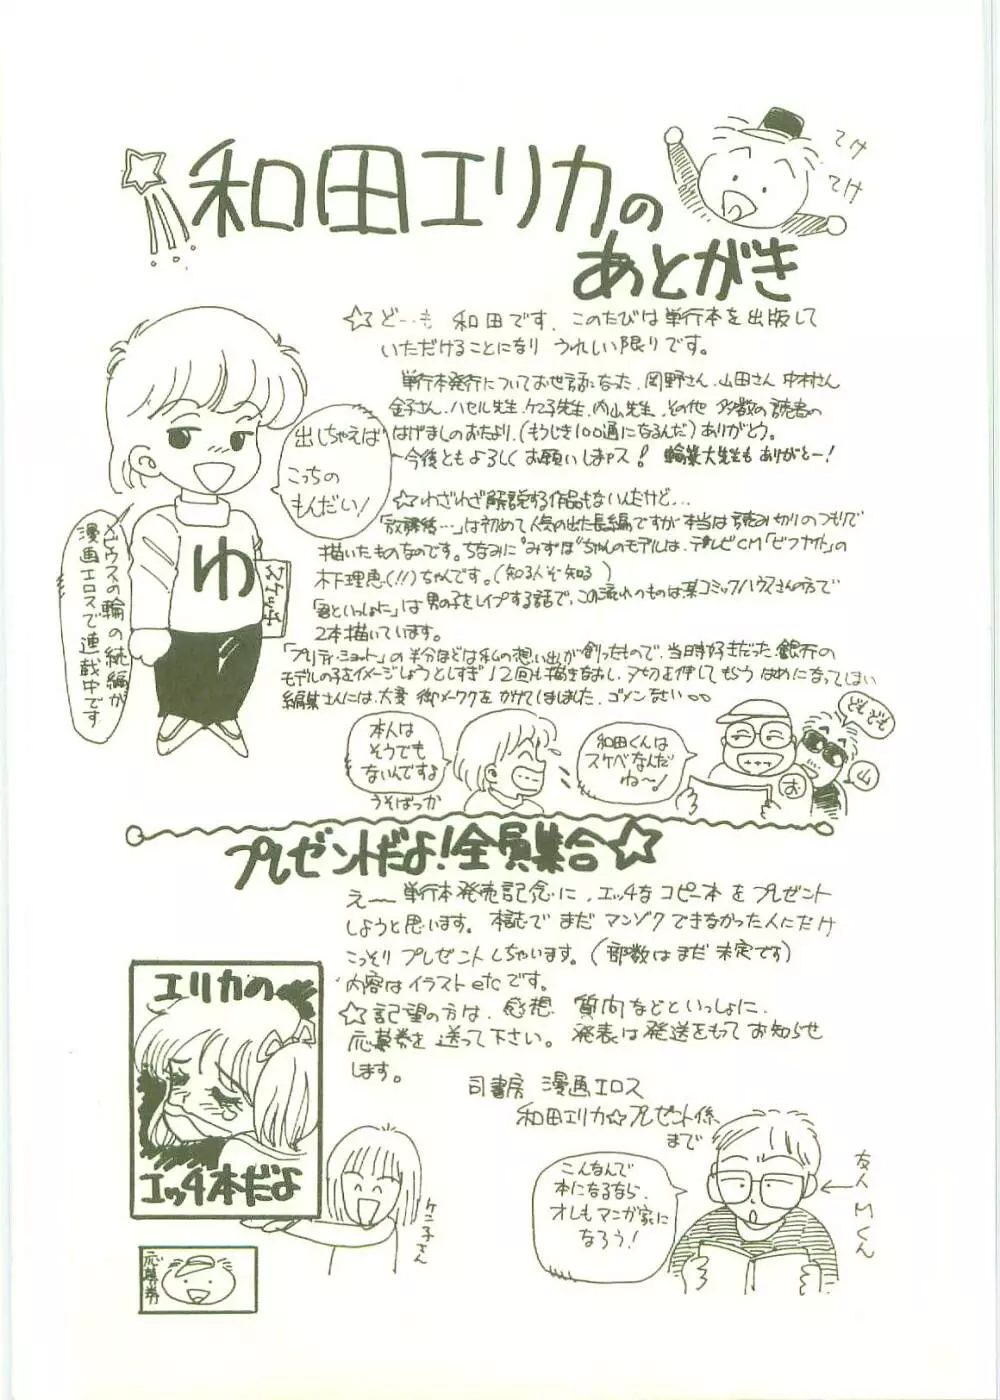 和田エリカの
あとがき
てけ
てけ
☆ど…も 和田です。このたびは単行本を出版して
いただけることになり うれしい限りです。
単行本発行についてお世話になった、岡野さん、山田さん 中村さん
金子さん、ハセル先生、ケニ子先生、内山先生、その他 多数の読者の
はげましのおたより、(もうじき100通になるんだ)ありがとう。
〜今後ともよろしくお願いしまァス! 輪業大先生も ありがとー!
出しちゃえば
こっちの
もんだい!
ゆ
スケッチ
の輪の続編が
漫画エロスで連載中です
☆わざわざ解説する作品もないんだけど…
「放課後…」は初めて人気の出た長編ですが本当は読み切りのつもりで
描いたものなのです。ちなみに"みずほ"ちゃんのモデルは、テレビCM「ビフナイト」の
木下理恵(!!)ちゃんです。(知る人ぞ知る)
「君といっしょに」は男の子をレイプする話で、この流れのものは某コミックハウスさんの方で
2本描いています。
「プリティ・ショット」の半分ほどは私の想い出が創ったもので、当時好きだった銀行の
モデルの子をイメージしようとしすぎ12回も描きなおし、〆切を伸してもらうはめになってしまい
編集さんには、大変御メーワクをかけてしまいました、ゴメンなさい
本人は
そうでも
ないんですよ
うそばっか
和田くんは
スケベなんだ
ね〜!
どもども
お
山
プレゼントだよ!全員集合☆
え〜 単行本発売記念に、エッチな コピー本 を プレゼント
しようと思います。本誌で まだ マンゾク できなかった人にだけ
こっそり プレゼントしちゃいます。(部数はまだ 未定です)
内容はイラスト etc です。
☆記望の方は、感想 質問などといっしょに、
応募券を 送って下さい。 発表は発送をもって お知らせ
します。
司書房 漫画エロス
和田エリカ☆プレゼント係
まで
エリカの
エッチ本だよ
ケニ子さん
応募券
こんなんで
本になるなら、
オレもマンガ家に
なろう!
友人Mくん